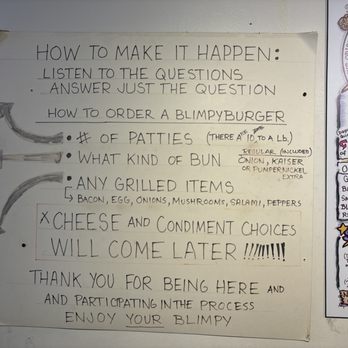 HOW TO MAKE IT HAPPEN:
LISTEN TO THE QUESTIONS
ANSWER JUST THE QUESTION
HOW TO ORDER A BLIMPYBURGER
• # OF PATTIES (THERE ARE 10 TO A Lb.)
• WHAT KIND OF BUN REGULAR (INCLUDED)
ONION, KAISER
OR PUMPERNICKEL
EXTRA
• ANY GRILLED ITEMS
↳ BACON, EGG, ONIONS, MUSHROOMS, SALAMI, PEPPERS
X CHEESE AND CONDIMENT CHOICES
WILL COME LATER !!!!!!!!
THANK YOU FOR BEING HERE AND
AND PARTICIPATING IN THE PROCESS
ENJOY YOUR BLIMPY